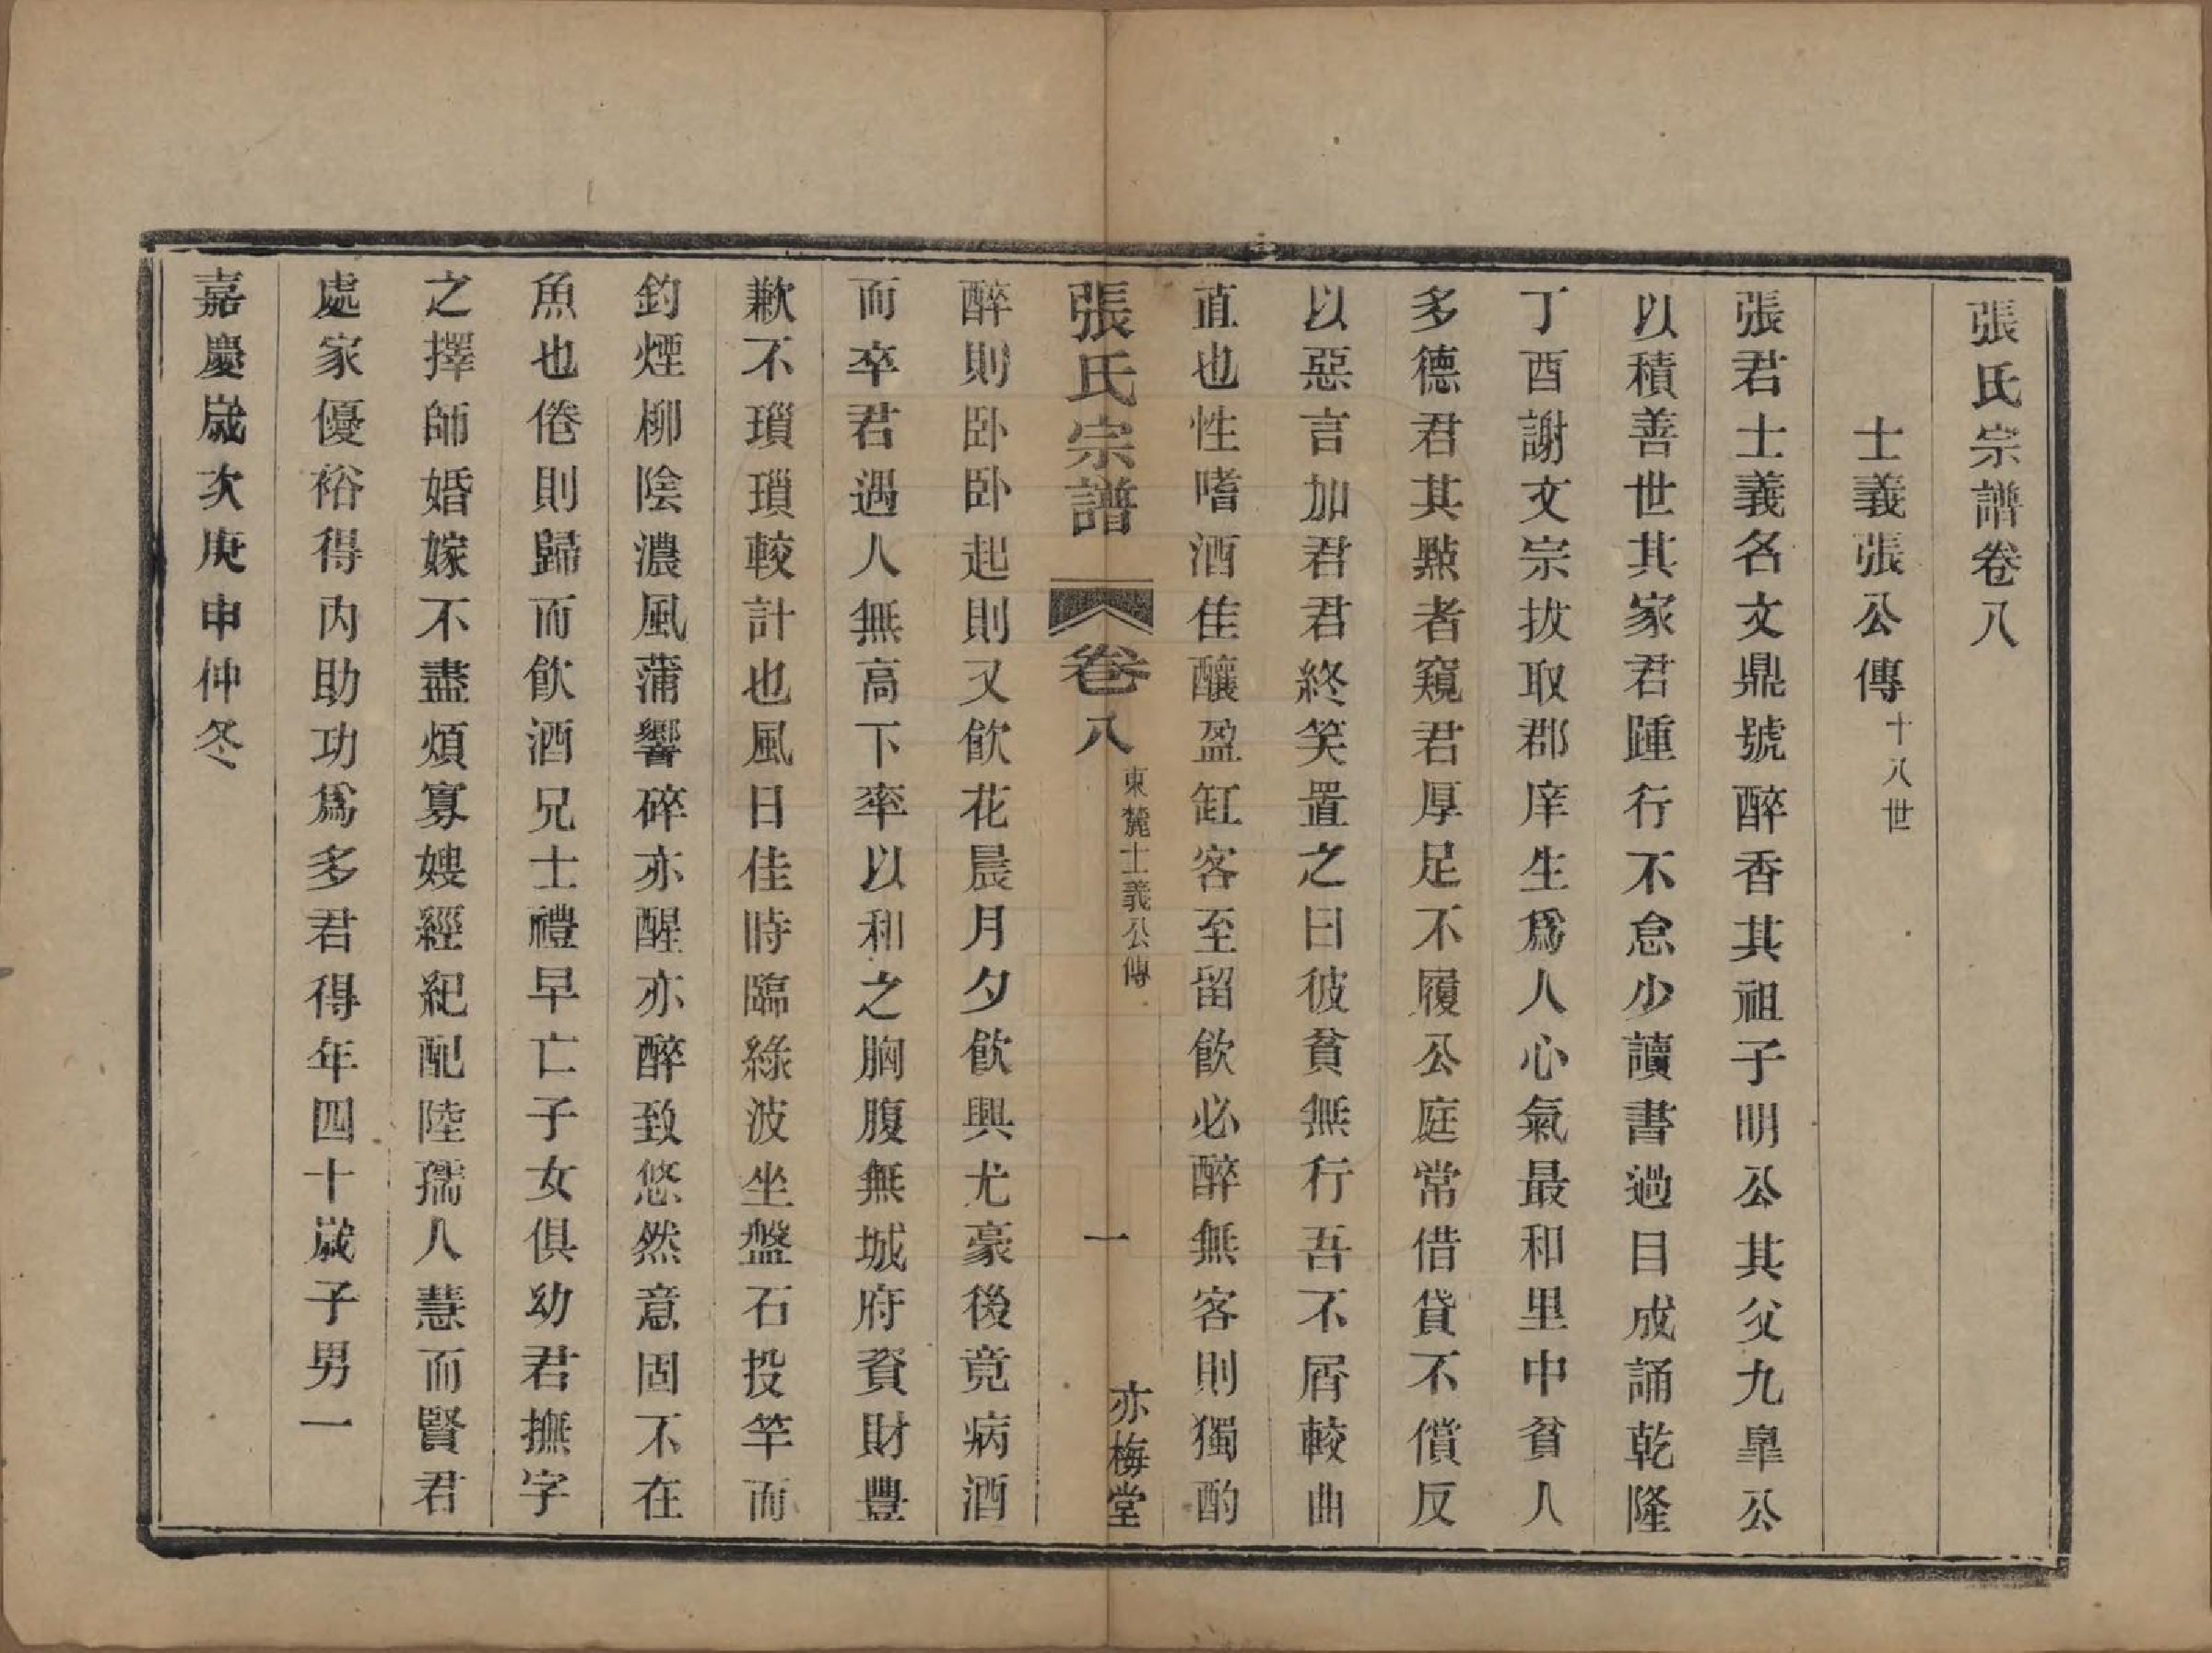 張氏宗譜卷八
士義張公傳十八世
張君士義名文鼎號醉香其祖子明公其父九臯公
以積善世其家君踵行不怠少讀書過目成誦乾隆
丁酉謝文宗拔取郡庠生爲人心氣最和里中貧人
多德君其點者窺君厚足不履公庭常借貸不償反
以惡言加君君終笑置之曰彼貧無行吾不屑較曲
直也性嗜酒佳釀盈缸客至留飲必醉無客則獨酌
張氏宗譜 卷八 東麓士義公傳 一 亦梅堂
醉則卧卧起則又飲花晨月夕飲興尤豪後竟病酒
而卒君遇人無高下率以和之胸腹無城府資財豐
歉不瑣瑣較計也風日佳時臨綠波坐盤石投竿而
釣煙柳陰濃風蒲響碎亦醒亦醉致悠然意固不在
魚也倦則歸而飲酒兄士禮早亡子女俱幼君撫字
之擇師婚嫁不盡煩寡嫂經紀配陸孺人慧而賢君
處家優裕得内助功爲多君得年四十歲子男一
嘉慶歲次庚申仲冬